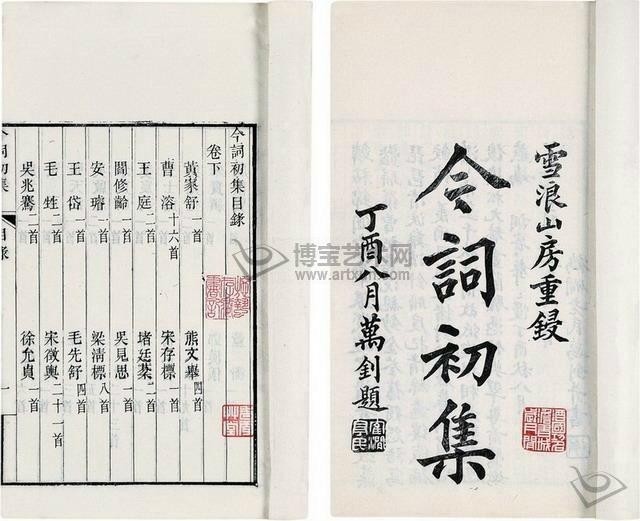 雪浪山房重鋟
今詞初集
丁酉八月萬釗題
今詞初集目錄
卷下
黃家舒 一首 熊文舉 四首
曹溶 十六首 宋存標 一首
王庭 二首 堵廷棻 二首
閻修齡 一首 吳見思 一首
安璿 一首 梁清標 八首
王岱 一首 毛先舒 四首
毛甡 二首 宋徵輿 二十一首
吳兆騫 一首 徐允貞 一首
今詞初集 目錄 一
博宝艺术网
www.artxun.com